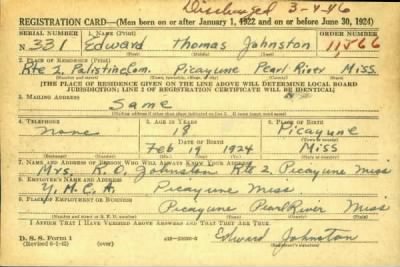 Discharged 3-4-46
REGISTRATION CARD—(Men born on or after January 1, 1922 and on or before June 30, 1924)
SERIAL NUMBER 1. NAME (Print) ORDER NUMBER
N 331 Edward Thomas Johnston 11866
(First) (Middle) (Last)
2. PLACE OF RESIDENCE (Print)
Rte 2. Palistine Com. Picayune Pearl River Miss.
[THE PLACE OF RESIDENCE GIVEN ON THE LINE ABOVE WILL DETERMINE LOCAL BOARD
JURISDICTION; LINE 2 OF REGISTRATION CERTIFICATE WILL BE IDENTICAL]
3. MAILING ADDRESS
Same
4. TELEPHONE 5. AGE IN YEARS 6. PLACE OF BIRTH
None 18 Picayune
DATE OF BIRTH
Feb 19 1924 Miss
7. NAME AND ADDRESS OF PERSON WHO WILL ALWAYS KNOW YOUR ADDRESS
Mrs. R. O. Johnston Rte 2. Picayune Miss
8. EMPLOYER'S NAME AND ADDRESS
Y. M. C. A. Picayune Miss.
9. PLACE OF EMPLOYMENT OR BUSINESS
Picayune Pearl River Miss
I AFFIRM THAT I HAVE VERIFIED ABOVE ANSWERS AND THAT THEY ARE TRUE.
D. S. S. Form 1
Edward Johnston